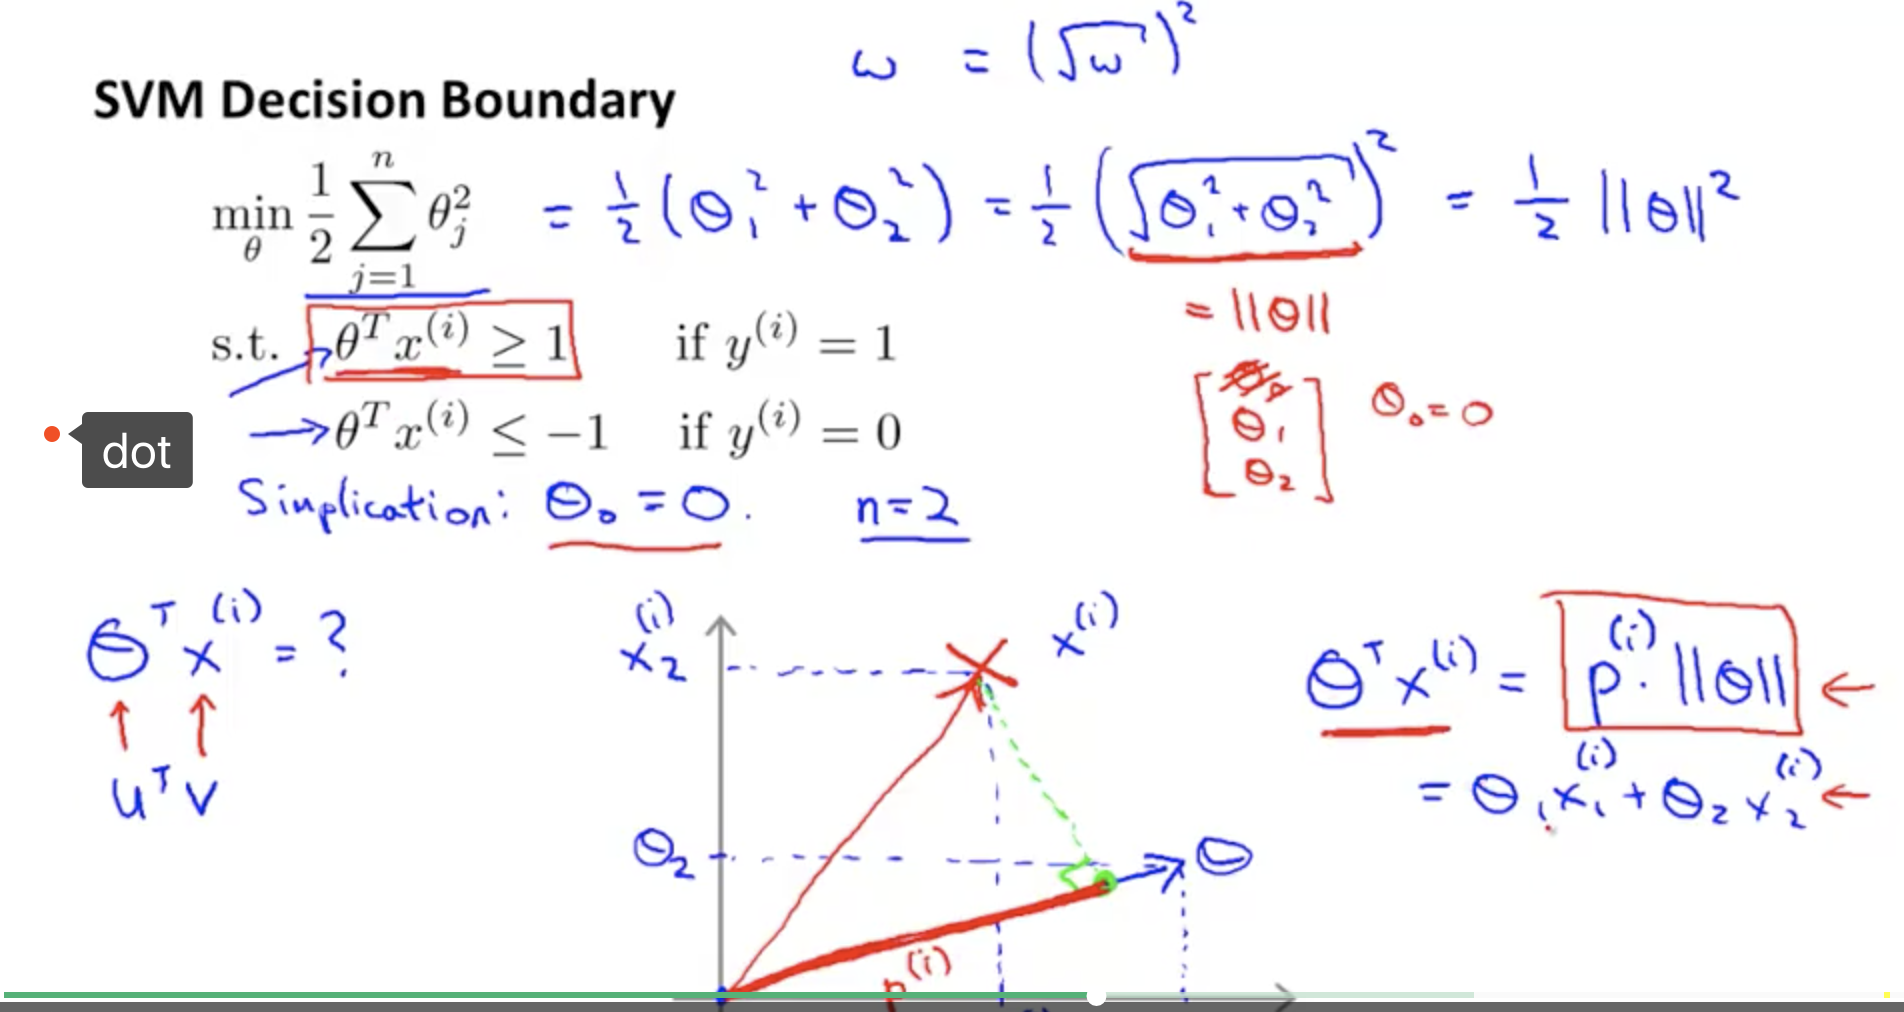 ω = (√ω)²
SVM Decision Boundary
min_θ 1/2 ∑_{j=1}^{n} θ_j² = 1/2 (θ₁² + θ₂²) = 1/2 (√(θ₁² + θ₂²))² = 1/2 ||θ||²
= ||θ||
s.t. θᵀx⁽ⁱ⁾ ≥ 1 if y⁽ⁱ⁾ = 1
θᵀx⁽ⁱ⁾ ≤ −1 if y⁽ⁱ⁾ = 0
[θ₀ θ₁ θ₂] θ₀ = 0
dot
Simplication: θ₀ = 0. n = 2
θᵀx⁽ⁱ⁾ = ?
uᵀv
x₂⁽ⁱ⁾
x⁽ⁱ⁾
θ₂
θ
p⁽ⁱ⁾
θᵀx⁽ⁱ⁾ = p⁽ⁱ⁾ · ||θ|| ←
= θ₁x₁⁽ⁱ⁾ + θ₂x₂⁽ⁱ⁾ ←